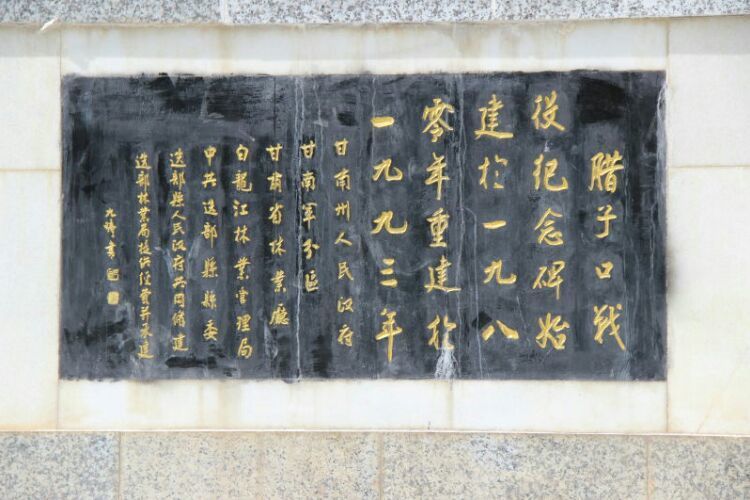 腊子口战
役纪念碑始
建於一九八
零年重建於
一九九三年
甘南州人民政府
甘南军分區
甘肃省林業廳
白龍江林業管理局
中共迭部縣縣委
迭部縣人民政府共同修建
迭部林業局提供經費并承建